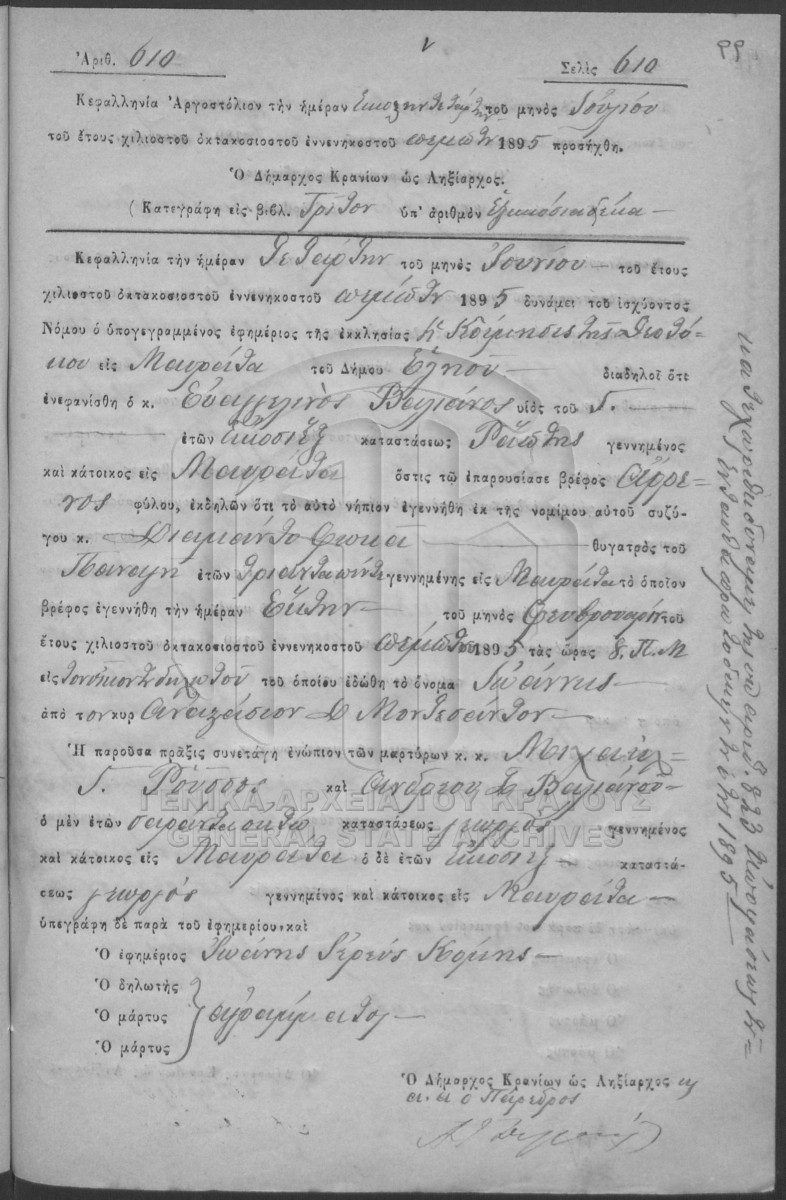 99
Ἀριθ. 610 Σελὶς 610
Κεφαλληνία Ἀργοστόλιον τὴν ἡμέραν τοῦ μηνὸς Ἰουλίου
τοῦ ἔτους χιλιοστοῦ ὀκτακοσιοστοῦ ἐννενηκοστοῦ πέμπτου 1895 προσήχθη.
Ὁ Δήμαρχος Κρανίων ὡς Ληξίαρχος.
(Κατεγράφη εἰς βιβλ. Τρίτον ὑπ' ἀριθμὸν ἑξακόσια δέκα —
Κεφαλληνία τὴν ἡμέραν Τετάρτην τοῦ μηνὸς Ἰουνίου — τοῦ ἔτους
χιλιοστοῦ ὀκτακοσιοστοῦ ἐννενηκοστοῦ πέμπτου 1895 δυνάμει τοῦ ἰσχύοντος
Νόμου ὁ ὑπογεγραμμένος ἐφημέριος τῆς ἐκκλησίας ἡ Κοίμησις τῆς Θεοτό-
κου εἰς Μαυράτα τοῦ Δήμου Ἐλειοῦ — διαδηλοῖ ὅτι
ἐνεφανίσθη ὁ κ. Εὐαγγελινὸς Βαλιάνος υἱὸς τοῦ Γ. —
ἐτῶν εἴκοσι ἓξ καταστάσεως Ράπτης γεννημένος
καὶ κάτοικος εἰς Μαυράτα ὅστις τῷ ἐπαρουσίασε βρέφος ἄρρε=
νος φύλου, ἐκδηλῶν ὅτι τὸ αὐτὸ νήπιον ἐγεννήθη ἐκ τῆς νομίμου αὐτοῦ συζύ-
γου κ. Διαμάντο Φωκᾶ — θυγατρὸς τοῦ
Παναγῆ ἐτῶν τριάντα πέντε γεννημένης εἰς Μαυράτα τὸ ὁποῖον
βρέφος ἐγεννήθη τὴν ἡμέραν Ἕκτην — τοῦ μηνὸς Φεβρουαρίου τοῦ
ἔτους χιλιοστοῦ ὀκτακοσιοστοῦ ἐννενηκοστοῦ πέμπτου 1895 τὰς ὥρας 8. Π.Μ
εἰς τοῦ ὁποίου ἐδώθη τὸ ὄνομα Ἰωάννης —
ἀπὸ τον κυρ Ἀναστάσιον Δ Μοντεσάντον —
Ἡ παροῦσα πρᾶξις συνετάγη ἐνώπιον τῶν μαρτύρων κ. κ. Μιχαὴλ =
Γ. Ροῦσσος καὶ Ἀνδρέου Βαλιάνου —
ὁ μὲν ἐτῶν σαράντα ὀκτὼ καταστάσεως γεωργὸς γεννημένος
καὶ κάτοικος εἰς Μαυράτα ὁ δὲ ἐτῶν εἴκοσι ἓξ — καταστά-
σεως γεωργὸς γεννημένος καὶ κάτοικος εἰς Μαυράτα —
ὑπεγράφη δὲ παρὰ τοῦ ἐφημερίου καὶ
Ὁ ἐφημέριος Ἰωάννης Ἱερεὺς Κομης —
Ὁ δηλωτὴς
Ὁ μάρτυς ἀγράμματοι —
Ὁ μάρτυς
Ὁ Δήμαρχος Κρανίων ὡς Ληξίαρχος
ὁ Πάρεδρος
ΓΕΝΙΚΑ ΑΡΧΕΙΑ ΤΟΥ ΚΡΑΤΟΥΣ
GENERAL STATE ARCHIVES